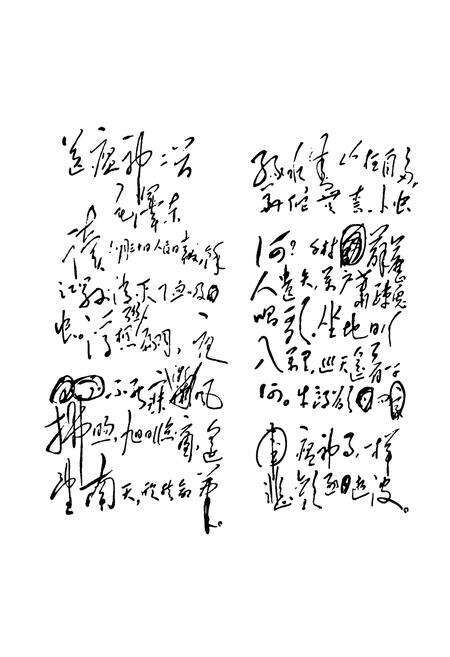 送瘟神二首
毛澤東
讀六月三十日人民日報,餘
江縣消灭了血吸
虫。浮想聯翩,夜
不能寐。微风
拂煦,旭日临窗,遥
望南天,欣然命筆。
綠水青山枉自多,
華佗無奈小虫
何?千村薜荔
人遺矢,万户蕭疎鬼
唱歌。坐地日行
八千里,巡天遥看一千
河。牛郎欲問
瘟神事,一样
悲歡逐逝波。